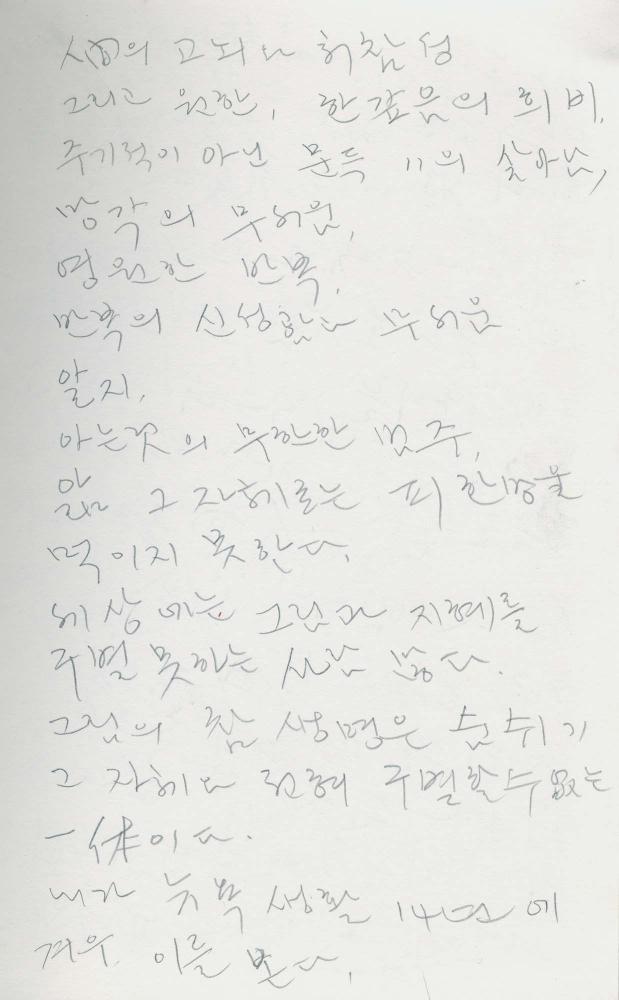 시간의 고뇌와 허참성
그리고 원한, 한갖음의 희비,
주기적이 아닌 문득 〃의 살아남,
망각의 무서움,
영원한 반복,
반복의 신성함과 무서움
알지,
아는것의 무한한 범주,
앎 그 자체로는 피 한방울
먹이지 못한다,
세상에는 그림과 지혜를
구별 못하는 사람 많다.
그림의 참 생명은 숨쉬기
그 자체와 전혀 구별할 수 없는
一体이다.
내가 뉴욕 생활 14년에
겨우 이를 본다,